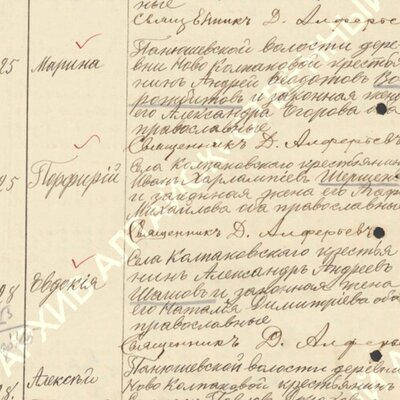 ные
Священникъ Д. Алферьевъ
25 Марина
Панюшевской волости дерев
вни Ново Колпаковой крестья
нинъ Андрей Ѳедотовъ Во
рожбитовъ и законная жена
его Александра Егорова оба
православные
Священникъ Д. Алферьевъ
25 Порфирій
Села Колпаковскаго крестьянинъ
Иванъ Харлампіевъ
и законная жена его
Михайлова оба православные
Священникъ Д. Алферьевъ
28 Евдокія
Села Колпаковскаго крестья
нинъ Александръ Андреевъ
Шашовъ и законная жена
его Наталія Димитріева оба
православные
Священникъ Д. Алферьевъ
28 Алексѣй
Панюшевской волости деревни
Ново Колпаковой крестьянинъ